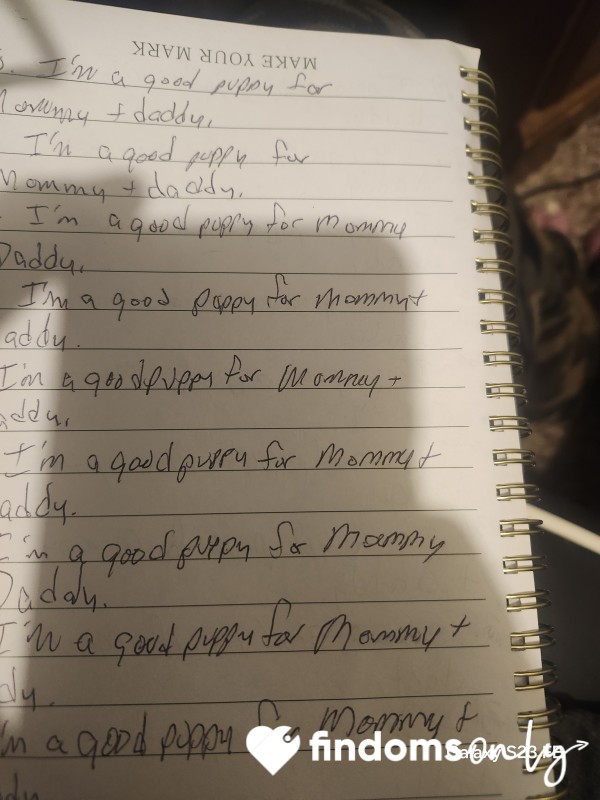 MAKE YOUR MARK
I'm a good puppy for
Mommy + daddy.
I'm a good puppy for
Mommy + daddy.
I'm a good puppy for mommy
Daddy.
I'm a good puppy for mommy +
addy.
I'm a good puppy for Mommy +
addy.
I'm a good puppy for Mommy +
addy.
I'm a good puppy for Mommy
Daddy.
I'm a good puppy for Mommy +
dy.
I'm a good puppy for Mommy +
findoms
Galaxy S23 FE